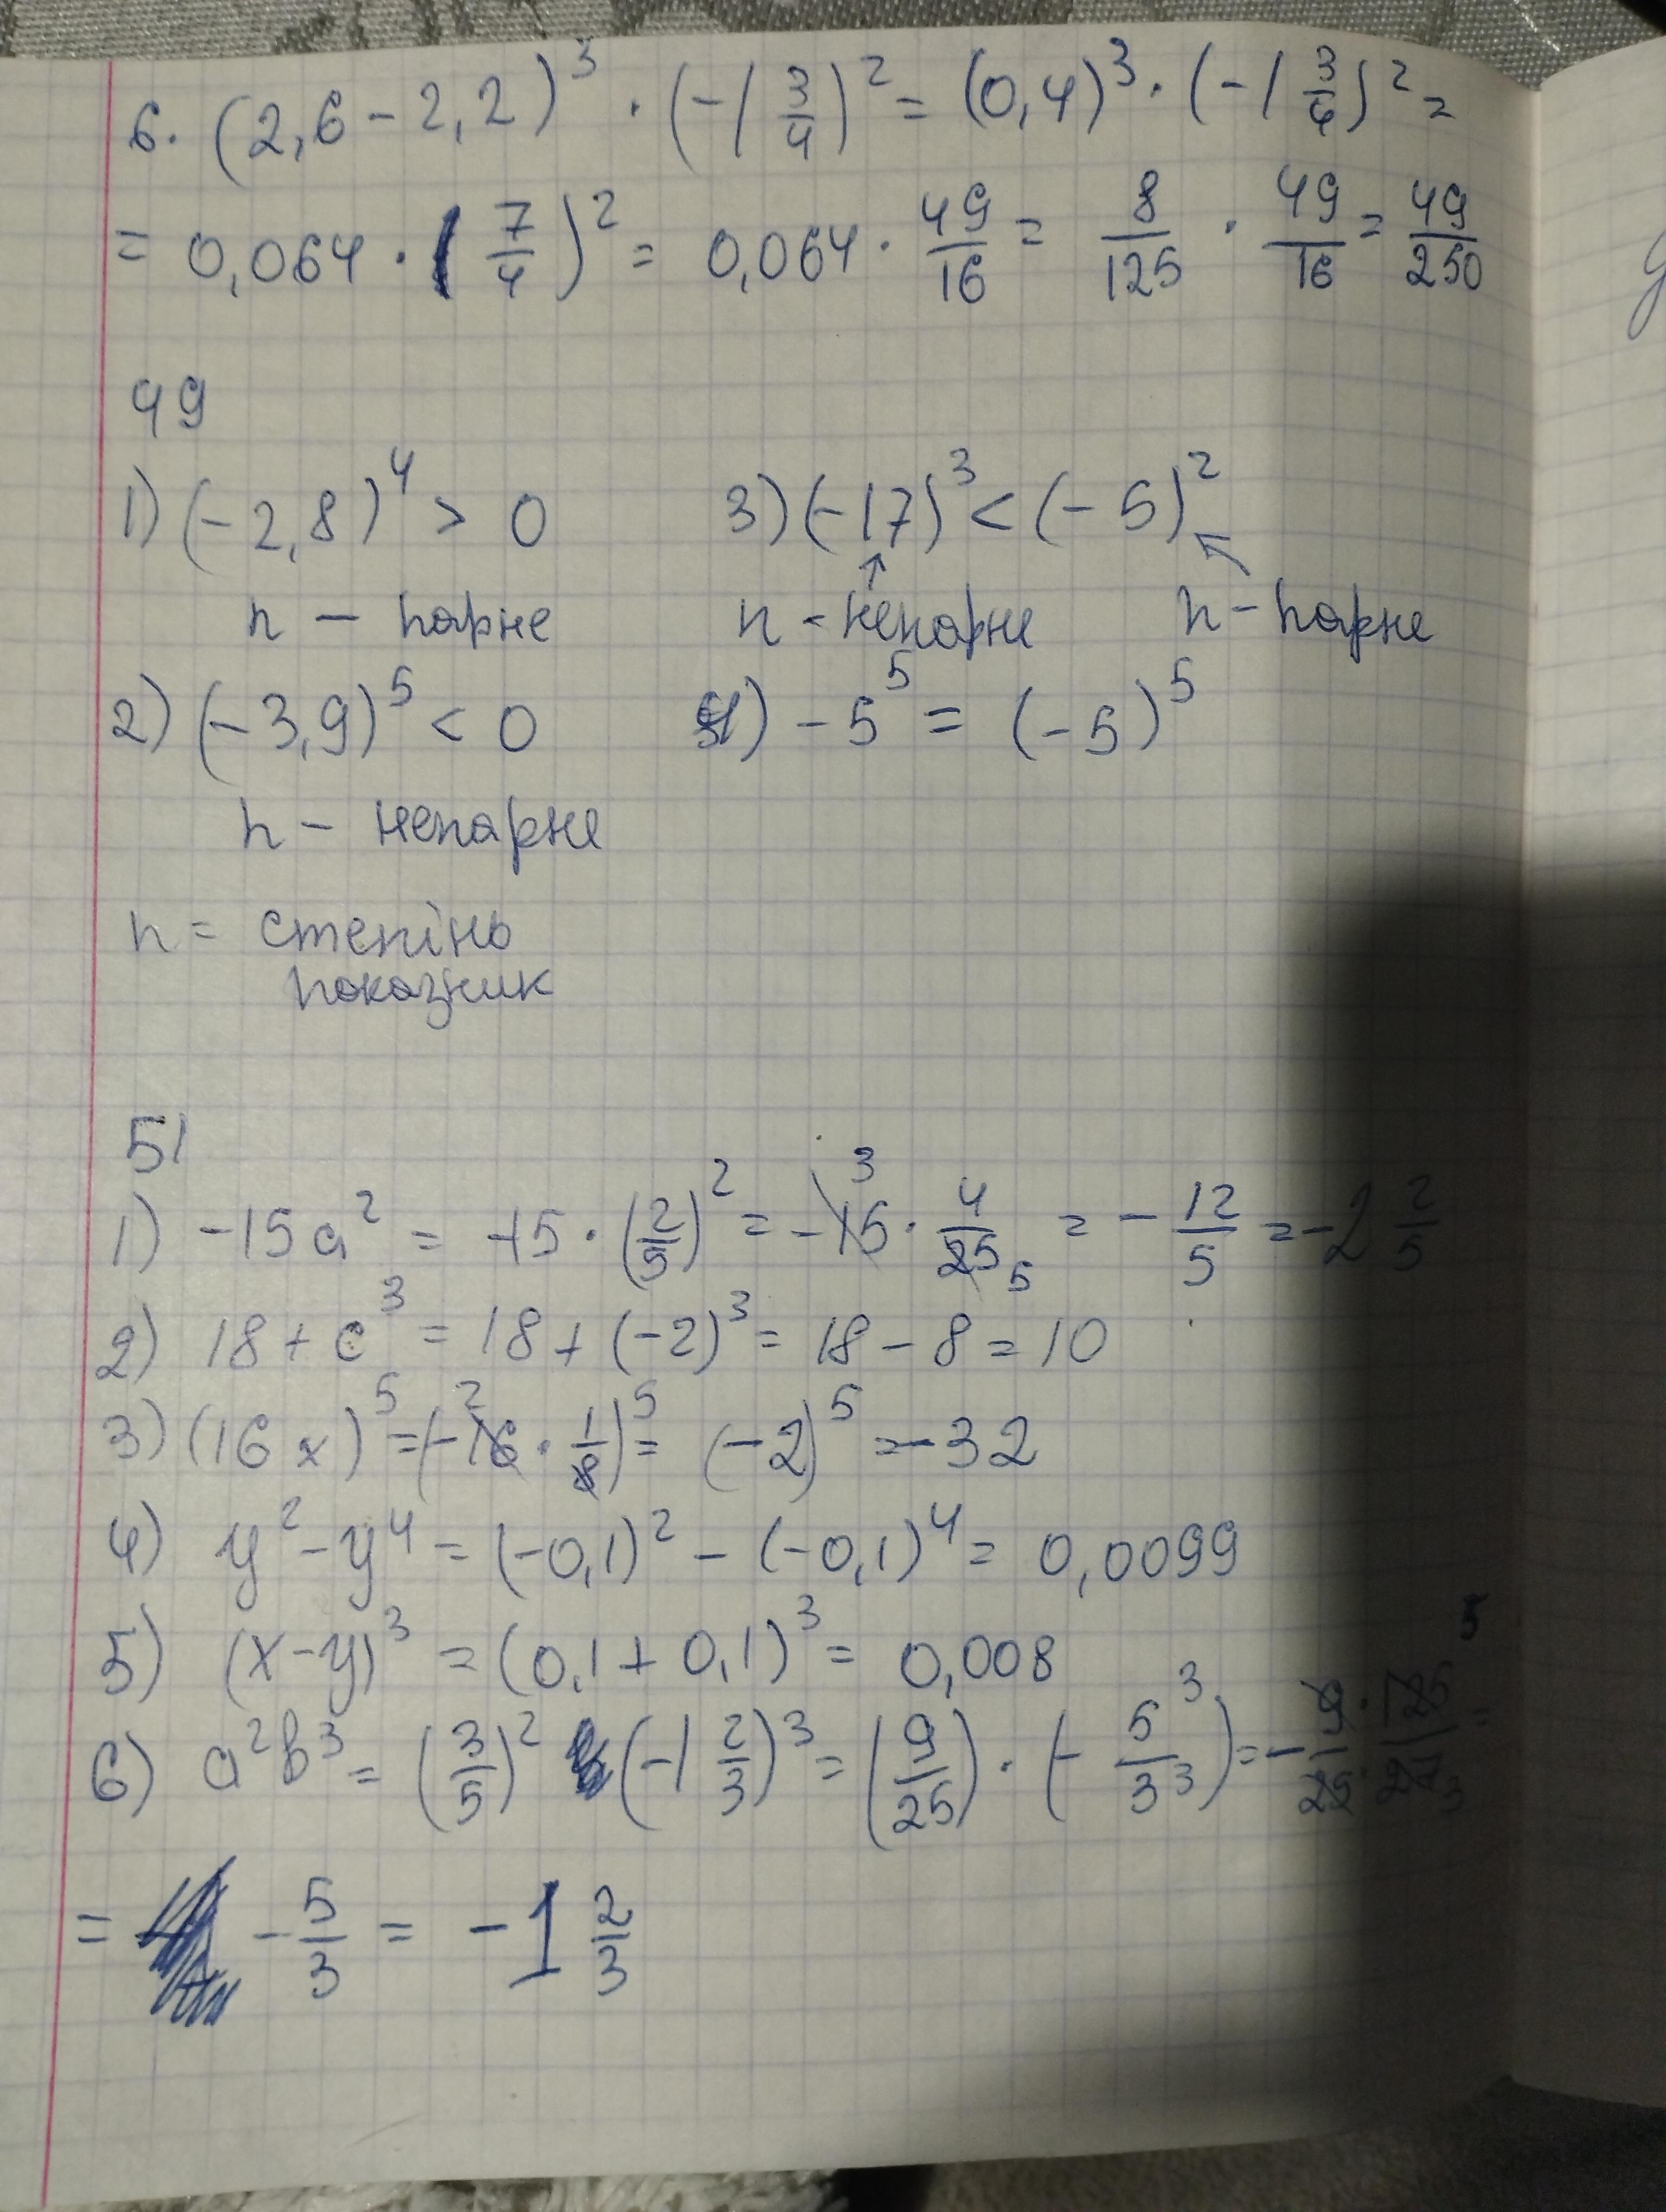 6. (2,6 - 2,2)³ · (-1 3/4)² = (0,4)³ · (-1 3/4)² =
= 0,064 · (7/4)² = 0,064 · 49/16 = 8/125 · 49/16 = 49/250
49
1) (-2,8)⁴ > 0 3) (-17)³ < (-5)²
n - парне n - непарне n - парне
2) (-3,9)⁵ < 0 4) -5⁵ = (-5)⁵
n - непарне
n = степінь
показник
51
1) -15a² = -15 · (2/5)² = -15 3 · 4/25 5 = -12/5 = -2 2/5
2) 18 + c³ = 18 + (-2)³ = 18 - 8 = 10
3) (16x)⁵ = (-16 2 · 1/8)⁵ = (-2)⁵ = -32
4) y² - y⁴ = (-0,1)² - (-0,1)⁴ = 0,0099
5) (x - y)³ = (0,1 + 0,1)³ = 0,008
6) a²b³ = (3/5)² (-1 2/3)³ = (9/25) · (-5³/3³) = -9/25 · 125 5/27 3 =
= -5/3 = -1 2/3